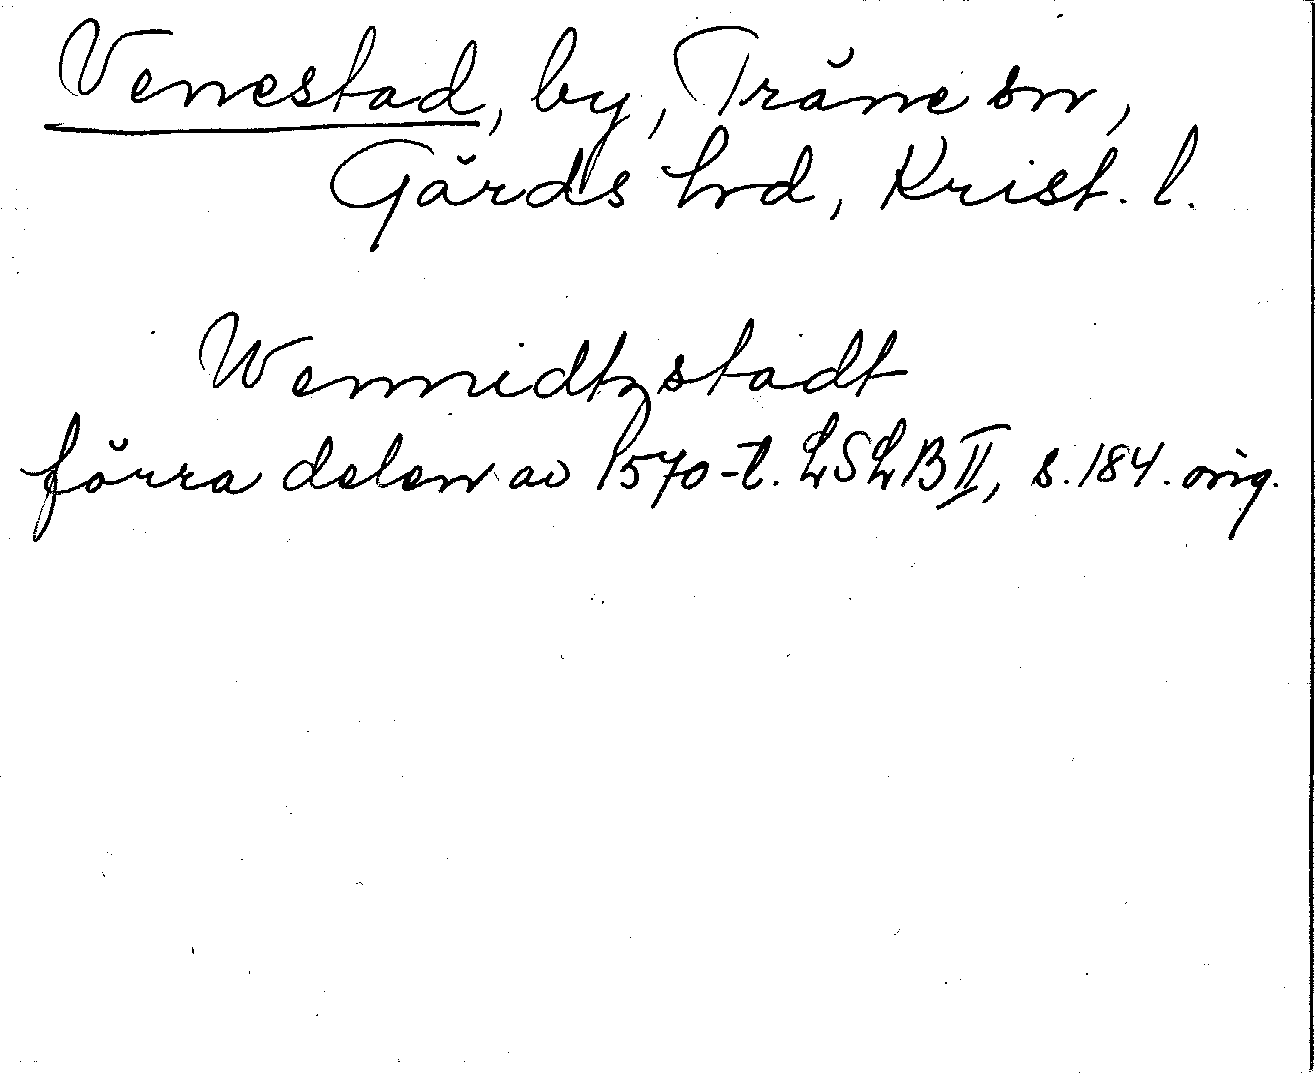 Venestad, by, Träne sn,
Gärds hrd, Krist. l.
Wennidtzstadt
förra delen av 1570-t. LSLB II, s. 184. orig.